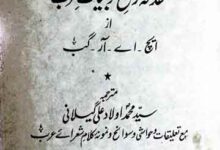 مقدمہ تاریخ ادبیات عرب
از
ایچ - اے - آر - گب
مترجمہ
سید محمد اولاد علی گیلانی
مع تعلیقات و حواشی و سوانح و نمونہ کلام شعرائے عرب